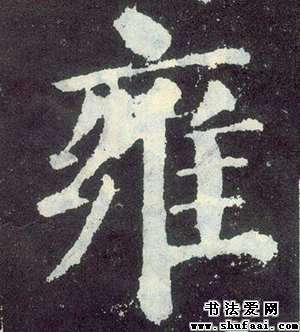 雍
书法爱网
www.shufaai.com